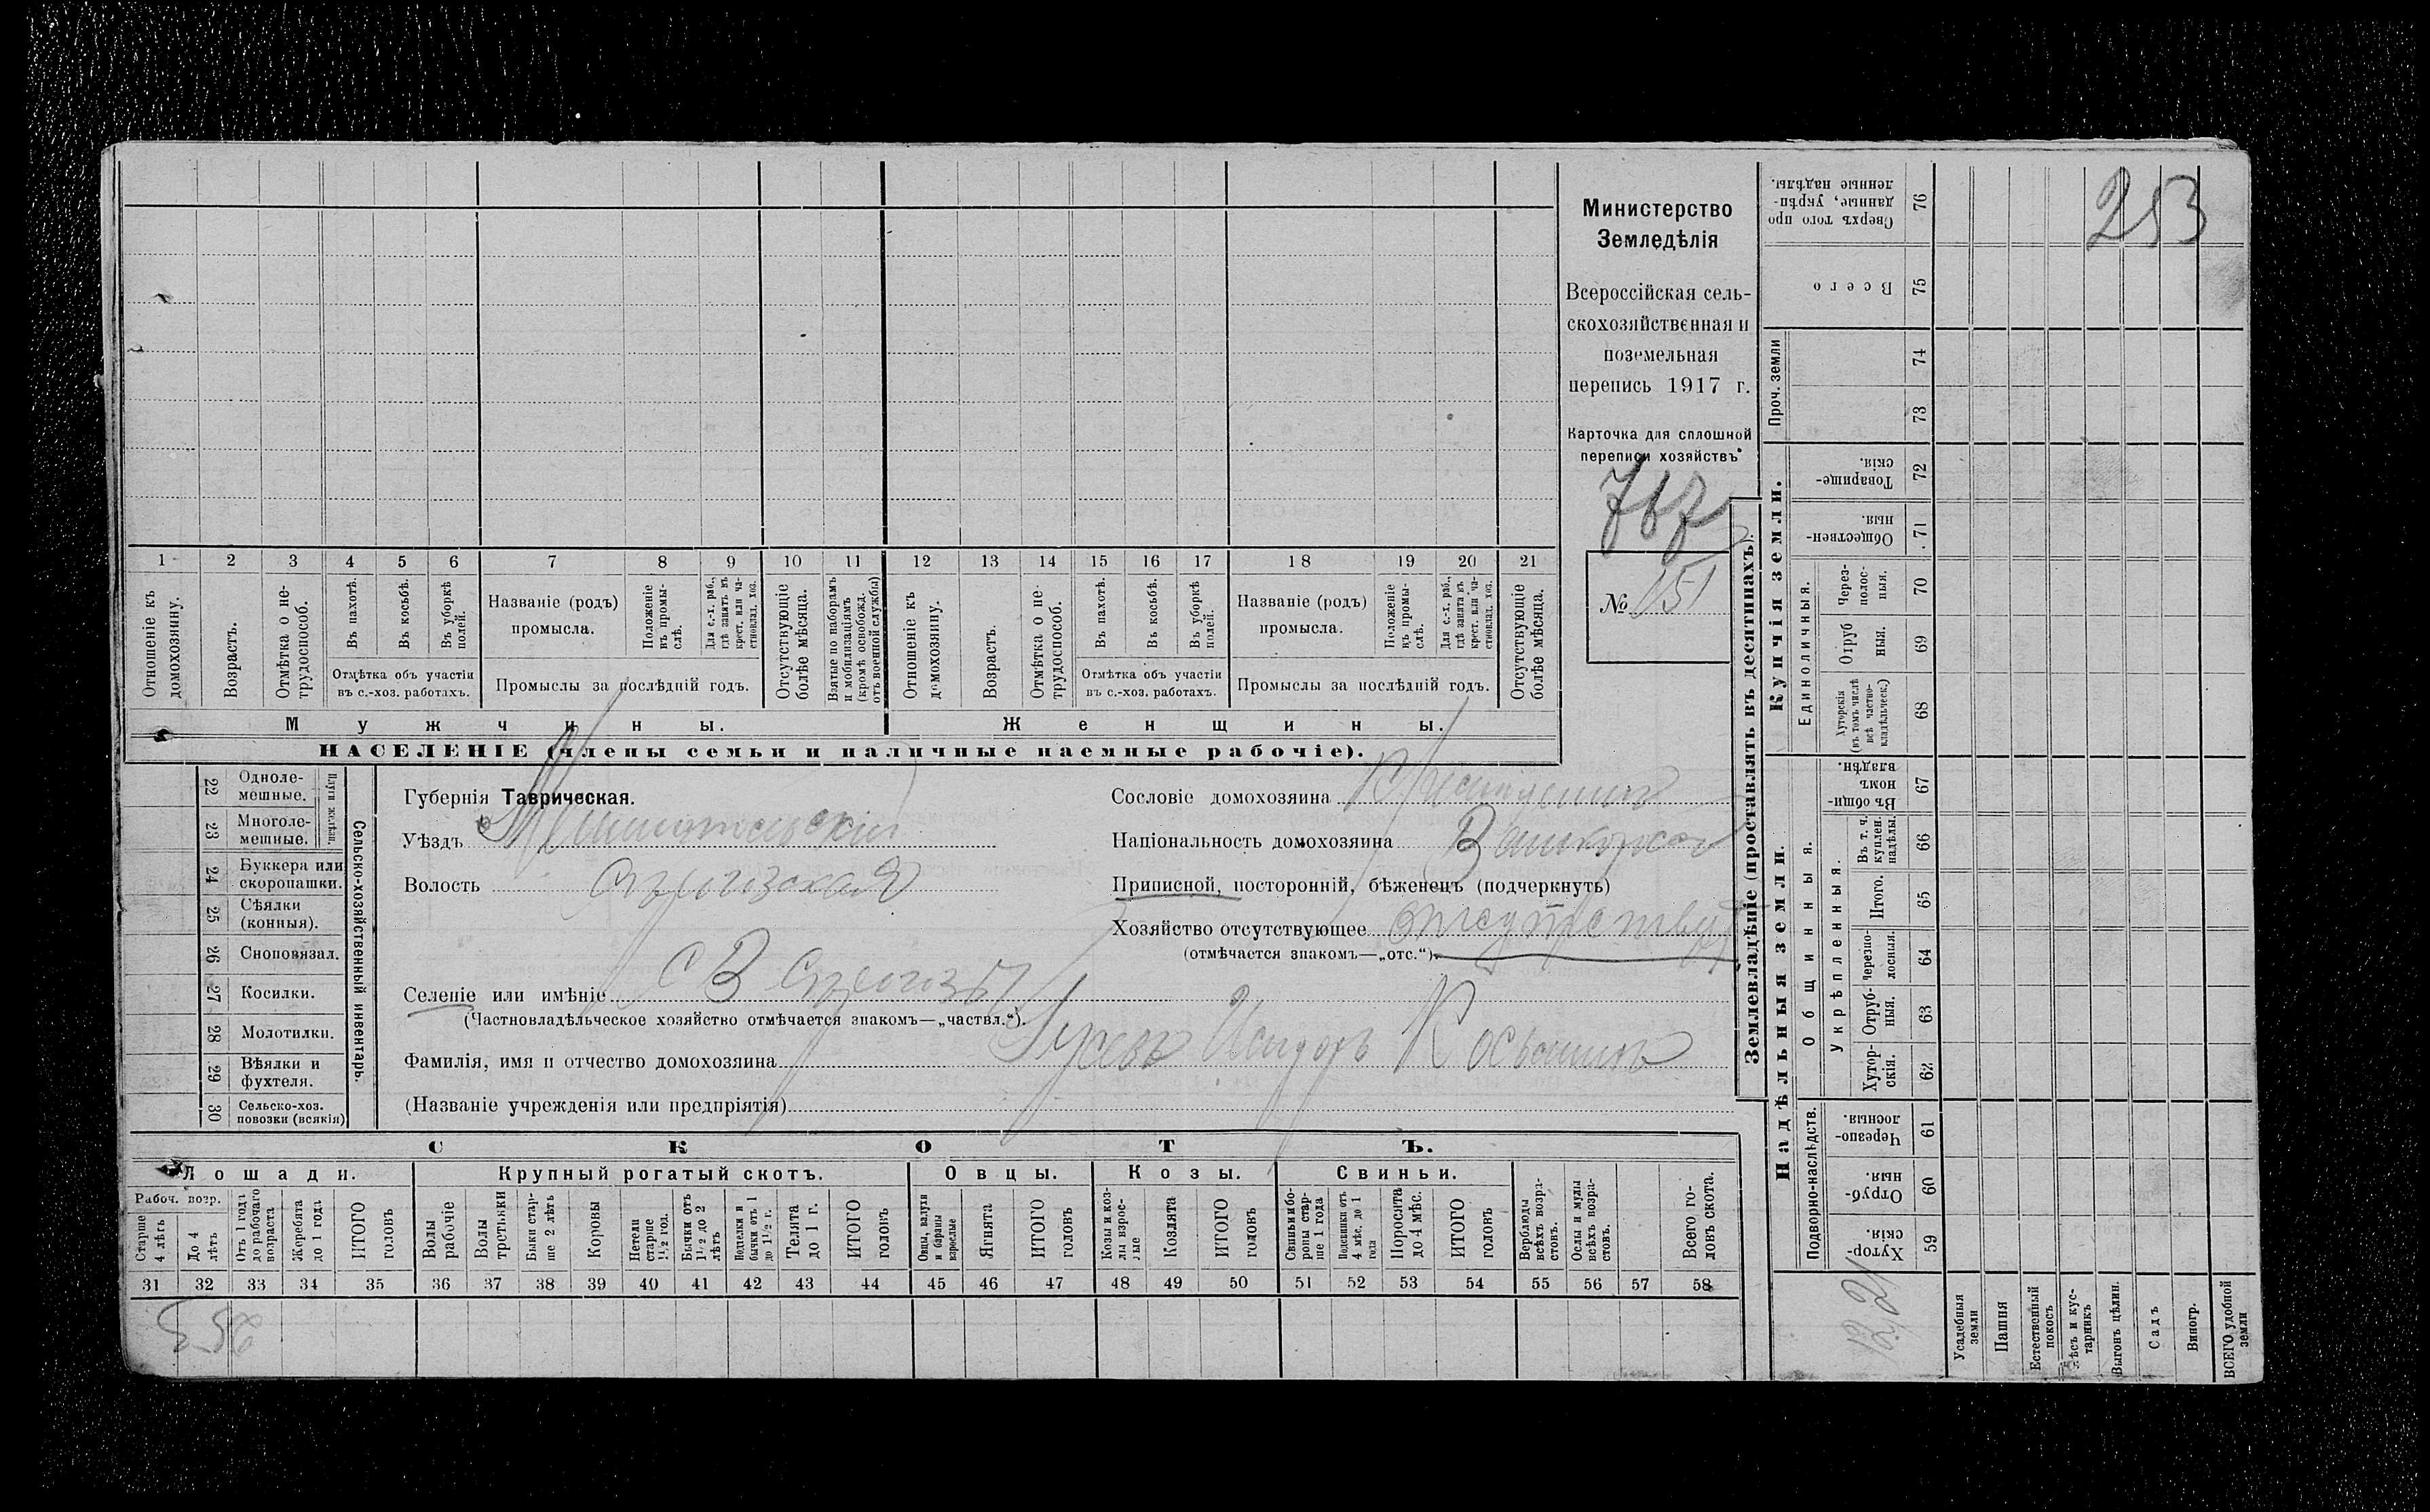 Министерство
Земледѣлія
Всероссійская сель-
скохозяйственная и
поземельная
перепись 1917 г.
Карточка для сплошной
переписи хозяйствъ
№ 151
253
1 2 3 4 5 6 7 8 9 10 11 12 13 14 15 16 17 18 19 20 21
Отношеніе къ домохозяину.
Возрастъ.
Отмѣтка о не-трудоспособ.
Въ пахотѣ.
Въ косьбѣ.
Въ уборкѣ полей.
Отмѣтка объ участіи
въ с.-хоз. работахъ.
Названіе (родъ)
промысла.
Положеніе въ промы-слѣ.
Для с.-х. раб., гдѣ занятъ въ крест. или ча-стновлад. хоз.
Промыслы за послѣдній годъ.
Отсутствующіе болѣе мѣсяца.
Взятые по наборамъ и мобилизаціямъ (кромѣ освобожд. отъ военной службы)
Отношеніе къ домохозяину.
Возрастъ.
Отмѣтка о не-трудоспособ.
Въ пахотѣ.
Въ косьбѣ.
Въ уборкѣ полей.
Отмѣтка объ участіи
въ с.-хоз. работахъ.
Названіе (родъ)
промысла.
Положеніе въ промы-слѣ.
Для с.-х. раб., гдѣ занята въ крест. или ча-стновлад. хоз.
Промыслы за послѣдній годъ.
Отсутствующіе болѣе мѣсяца.
Мужчины.
Женщины.
НАСЕЛЕНІЕ (члены семьи и наличные наемные рабочіе).
22 Одноле-мешные.
23 Многоле-мешные.
Плуги желѣзн.
24 Буккера или скоропашки.
25 Сѣялки (конныя).
26 Сноповязал.
27 Косилки.
28 Молотилки.
29 Вѣялки и фухтеля.
30 Сельско-хоз. повозки (всякія)
Сельско-хозяйственный инвентарь.
Губернія Таврическая.
Уѣздъ Мелитопольскій
Волость
Селеніе или имѣніе
(Частновладѣльческое хозяйство отмѣчается знакомъ—„частвл.“).
Фамилія, имя и отчество домохозяина Гусевъ Исидоръ
(Названіе учрежденія или предпріятія)
Сословіе домохозяина
Національность домохозяина
Приписной, посторонній, бѣженецъ (подчеркнуть)
Хозяйство отсутствующее отсутствует
(отмѣчается знакомъ—„отс.“).
СКОТЪ.
Лошади.
Крупный рогатый скотъ.
Овцы.
Козы.
Свиньи.
Рабоч. возр.
Старше 4 лѣтъ
До 4 лѣтъ
Отъ 1 года до рабочаго возраста
Жеребята до 1 года
ИТОГО головъ
Волы рабочіе
Волы третьяки
Быки стар-ше 2 лѣтъ
Коровы
Нетели старше 1½ год.
Бычки отъ 1½ до 2 лѣтъ
Подтелки и бычки отъ 1 до 1½ г.
Телята до 1 г.
ИТОГО головъ
Овцы, валухи и бараны взрослые
Ягнята
ИТОГО головъ
Козы и коз-лы взрос-лые
Козлята
ИТОГО головъ
Свиньи и бо-ровы стар-ше 1 года
Подсвинки отъ 4 мѣс. до 1 года
Поросята до 4 мѣс.
ИТОГО головъ
Верблюды всѣхъ возра-стовъ.
Ослы и мулы всѣхъ возра-стовъ.
Всего го-ловъ скота.
31 32 33 34 35 36 37 38 39 40 41 42 43 44 45 46 47 48 49 50 51 52 53 54 55 56 57 58
Землевладѣніе (проставлять въ десятинахъ).
Надѣльныя земли.
Купчія земли.
Проч. земли
Подворно-наслѣдств.
Общинныя.
Укрѣпленныя.
Единоличныя.
Хутор-скія. 59
Отруб-ныя. 60
Черезпо-лосныя. 61
Хутор-скія. 62
Отруб-ныя. 63
Черезпо-лосныя. 64
Итого. 65
Въ т. ч. куплен. надѣлы. 66
Въ общи-номъ владѣн. 67
Хуторскія (въ томъ числѣ всѣ частно-владѣльческ.) 68
Отруб ныя. 69
Через-полос-ныя. 70
Обществен-ныя. 71
Товарище-скія. 72
73
74
Всего 75
Сверхъ того про данные, укрѣп-ленные надѣлы. 76
Усадебныя земли
Пашня
Естественный покосъ
Лѣсъ и кус-тарникъ
Выгонъ цѣлин.
Садъ
Виногр.
ВСЕГО удобной земли